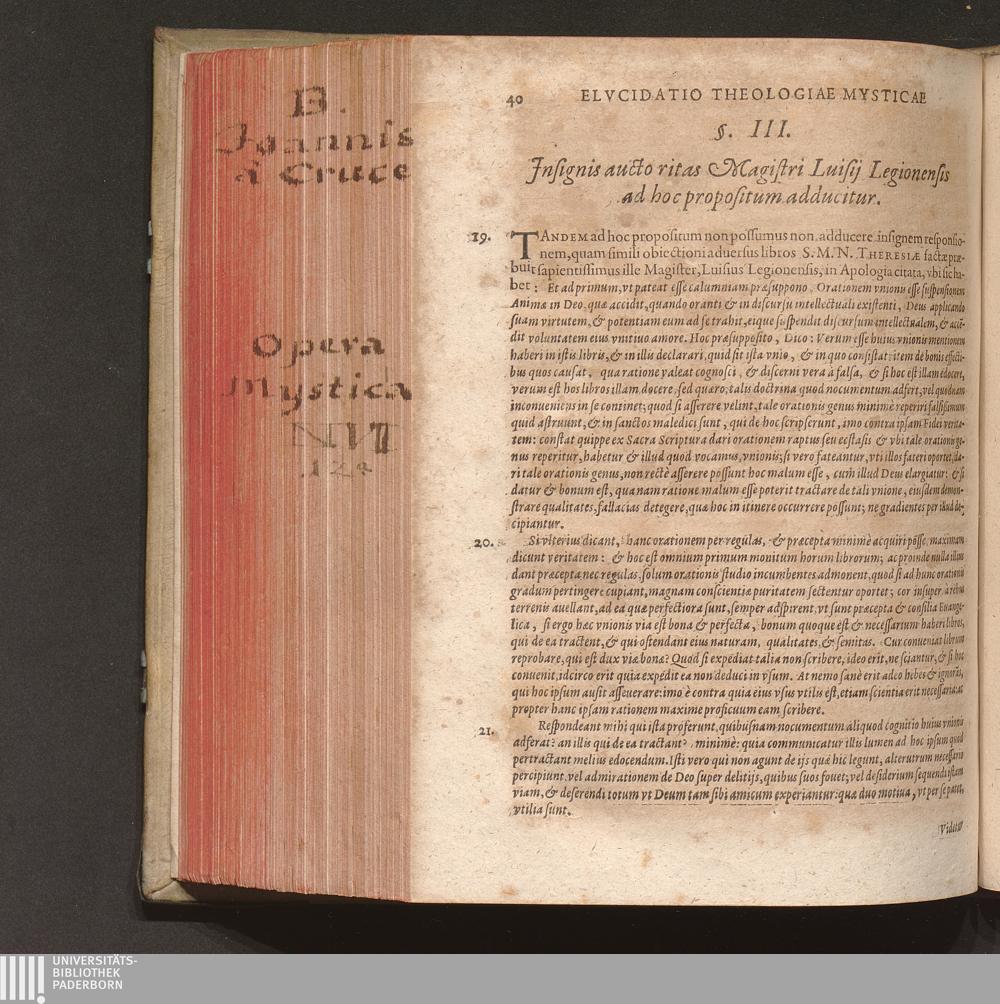 B.
Joannis
à Cruce
Opera
Mystica
40 ELVCIDATIO THEOLOGIAE MYSTICAE
§. III.
Insignis aucto ritas Magistri Luisij Legionensis
ad hoc propositum adducitur.
19. TANDEM ad hoc propositum non possumus non adducere insignem responsio-
nem, quam simili obiectioni aduersus libros S. M. N. THERESIÆ factæ præ-
buit sapientissimus ille Magister, Luisius Legionensis, in Apologia citata, vbi sic ha-
bet: Et ad primum, vt pateat esse calumniam præsuppono. Orationem vnionis esse suspensionem
Animæ in Deo, quæ accidit, quando oranti & in discursu intellectuali existenti, Deus applicando
suam virtutem, & potentiam eum ad se trahit, eique suspendit discursum intellectualem, & accē-
dit voluntatem eius vnitiuo amore. Hoc præsupposito, Dico: Verum esse huius vnionis mentionem
haberi in istis libris, & in illis declarari, quid sit ista vnio, & in quo consistat: item de bonis effecti-
bus quos causat, qua ratione valeat cognosci, & discerni vera à falsa, & si hoc est illam docere,
verum est hos libros illam docere, sed quæro, talis doctrina quod nocumentum adfert, vel quodnam
inconueniens in se continet; quod si asserere velint, tale orationis genus minimè reperiri falsissimum
quid astruunt, & in sanctos maledici sunt, qui de hoc scripserunt, imo contra ipsam Fidei verita-
tem: constat quippe ex Sacra Scriptura dari orationem raptus seu ecstasis & vbi tale orationis ge-
nus reperitur, habetur & illud quod vocamus, vnionis; si vero fateantur, vti illos fateri oportet, da-
ri tale orationis genus, non rectè asserere possunt hoc malum esse, cum illud Deus elargiatur: & si
datur & bonum est, quanam ratione malum esse poterit tractare de tali vnione, eiusdem demon-
strare qualitates, fallacias detegere, quæ hoc in itinere occurrere possunt; ne gradientes per illud de-
cipiantur.
20. Si vlterius dicant, hanc orationem per regulas, & præcepta minimè acquiri posse, maximam
dicunt veritatem: & hoc est omnium primum monitum horum librorum; ac proinde nulla illam
dant præcepta nec regulas, solum orationis studio incumbentes admonent, quod si ad hunc orationis
gradum pertingere cupiant, magnam conscientiæ puritatem sectentur oportet; cor insuper à rebus
terrenis auellant, ad ea quæ perfectiora sunt, semper adspirent, vt sunt præcepta & consilia Euange-
lica, si ergo hæc vnionis via est bona & perfecta, bonum quoque est & necessarium haberi libros,
qui de ea tractent, & qui ostendant eius naturam, qualitates, & semitas. Cur conueniat librum
reprobare, qui est dux viæ bonæ? Quod si expediat talia non scribere, ideo erit, ne sciantur, & si hoc
conuenit, idcirco erit quia expedit ea non deduci in vsum. At nemo sanè erit adeo hebes & ignarus,
qui hoc ipsum ausit asseuerare: imo è contra quia eius vsus vtilis est, etiam scientia erit necessaria: ac
propter hanc ipsam rationem maxime proficuum eam scribere.
21. Respondeant mihi qui ista proferunt, quibusnam nocumentum aliquod cognitio huius vnionis
adferat? an illis qui de ea tractant? minimè: quia communicatur illis lumen ad hoc ipsum quod
pertractant melius edocendum. Isti vero qui non agunt de ijs quæ hic legunt, alterutrum necessario
percipiunt, vel admirationem de Deo super delitijs, quibus suos fouet; vel desiderium sequendi istam
viam, & deserendi totum vt Deum tam sibi amicum experiantur: quæ duo motiua, vt per se patet,
vtilia sunt.
UNIVERSITÄTS-
BIBLIOTHEK
PADERBORN